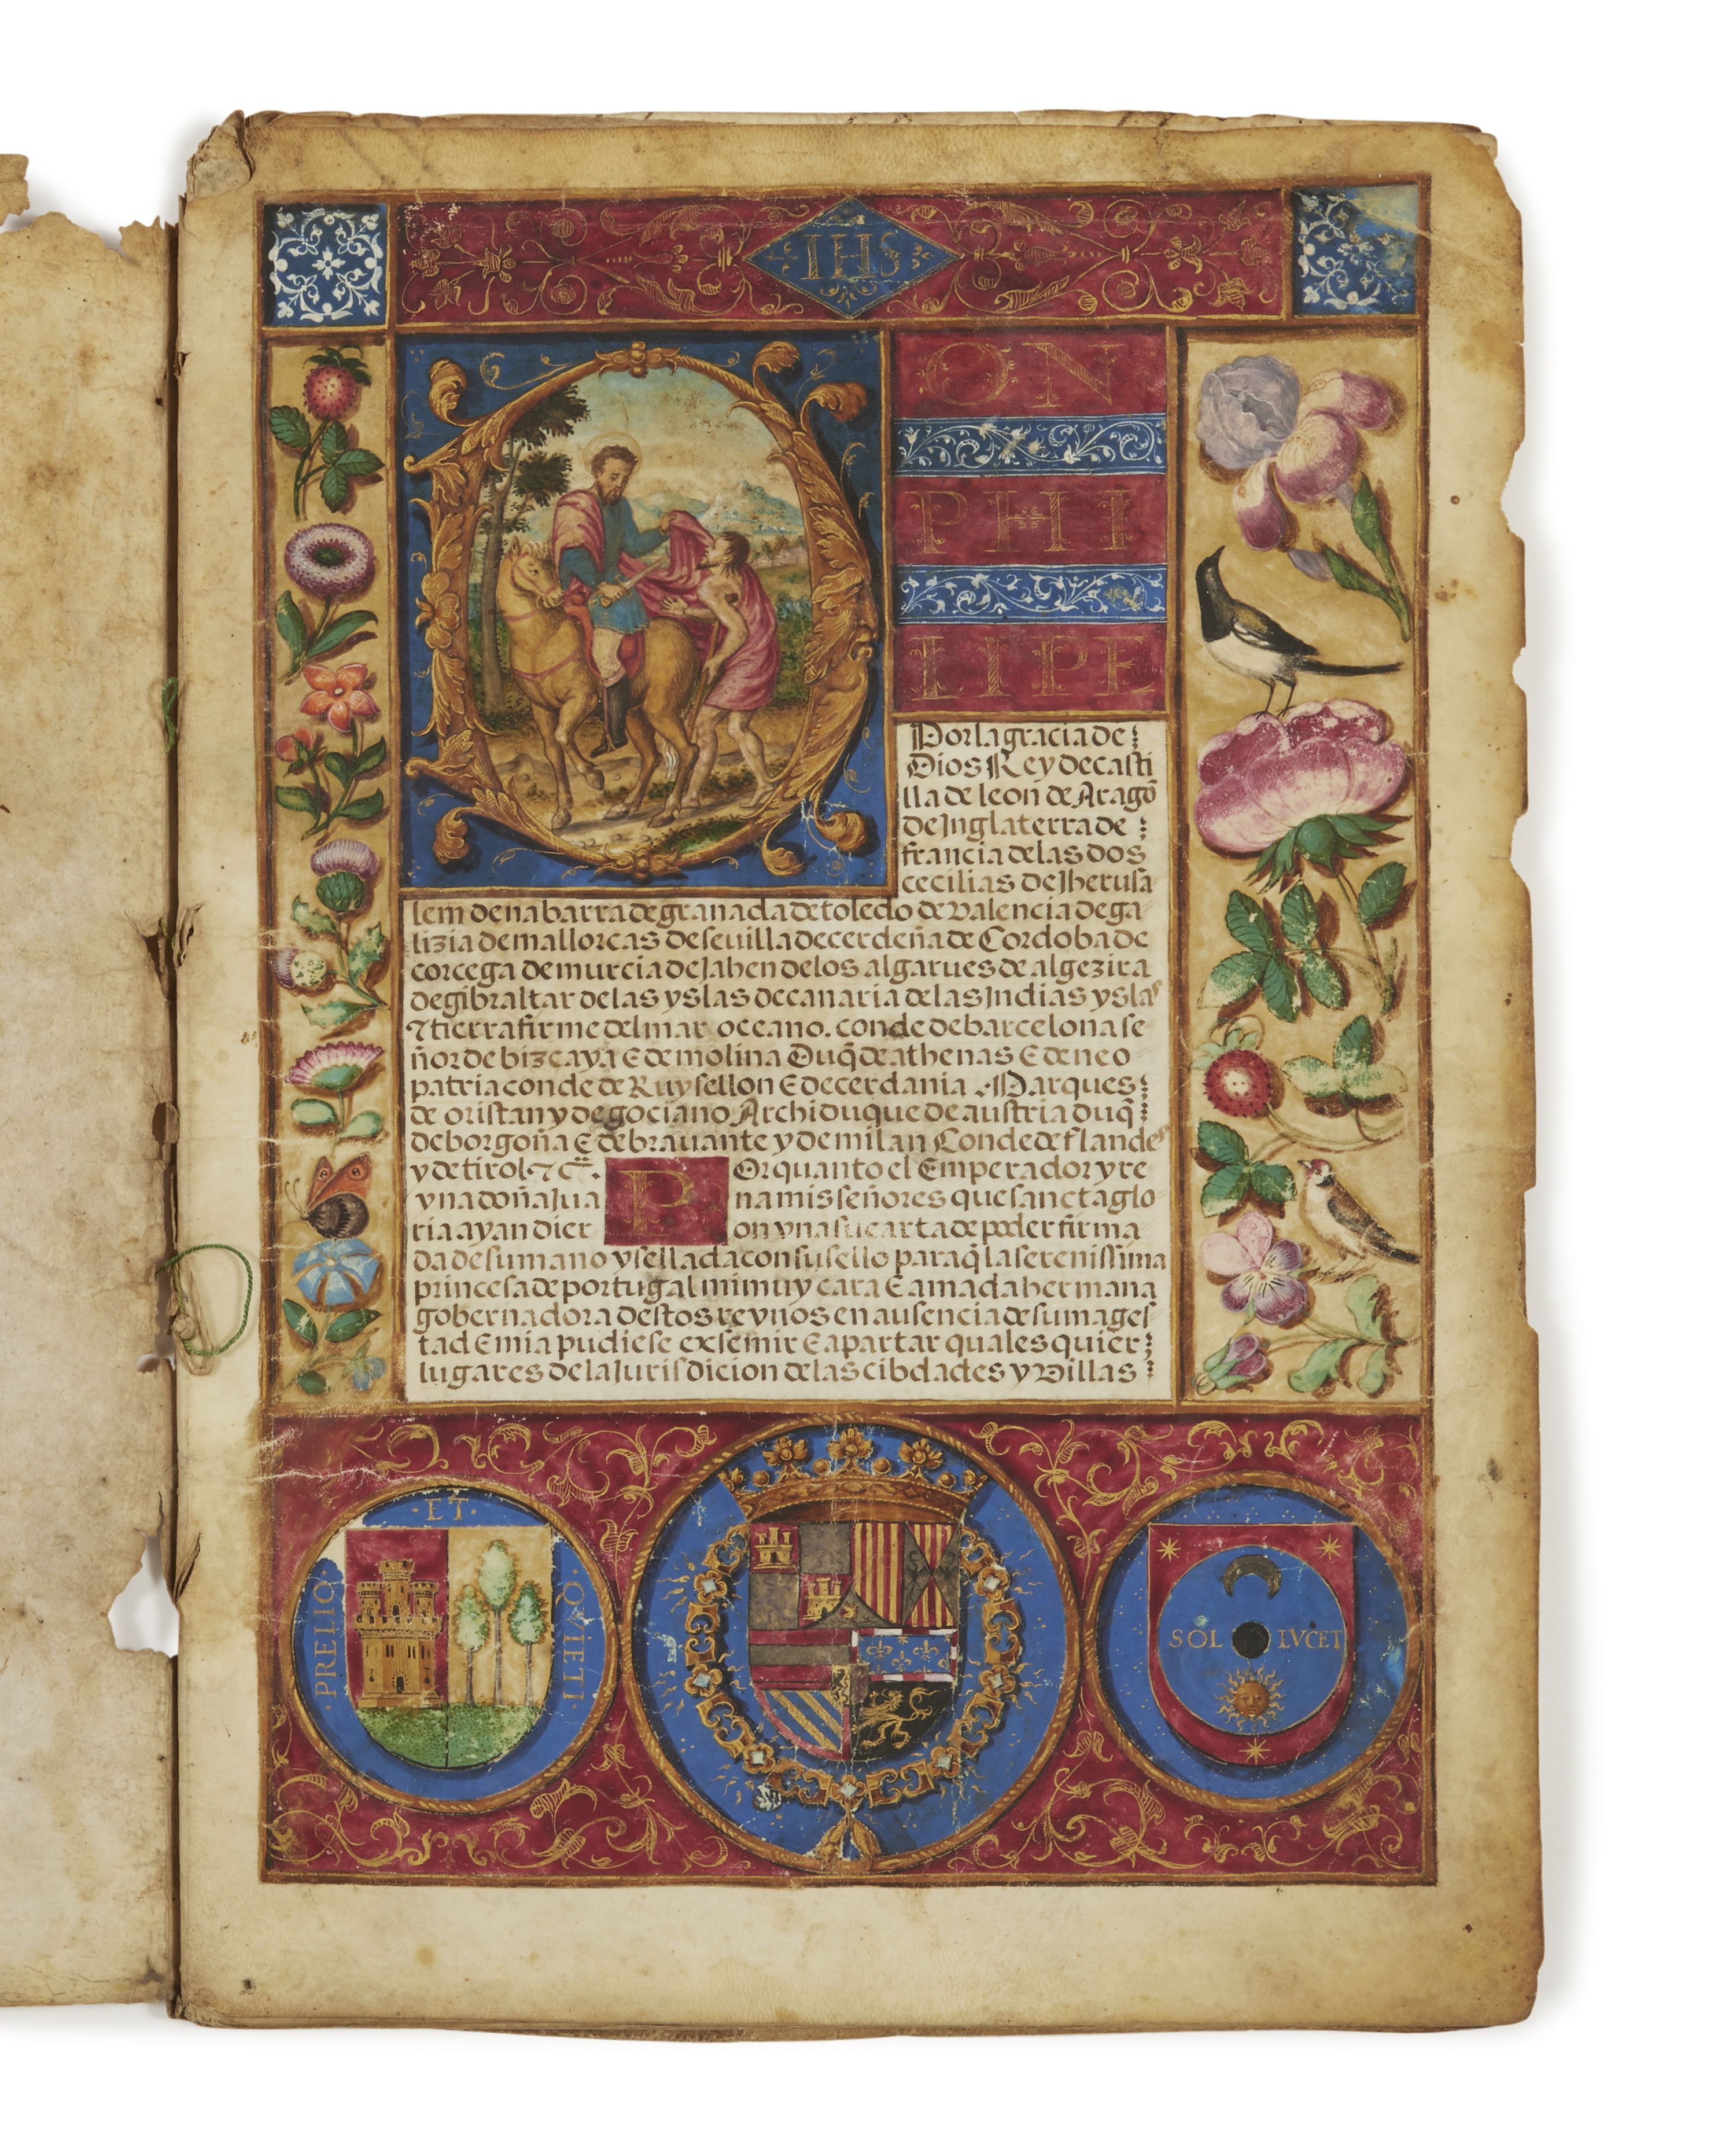 IHS
D
ON
PHI
LIPE
Por la gracia de
Dios Rey de casti
lla de leon de Aragõ
de Inglaterra de
francia de las dos
cecilias de Iherusa
lem de nabarra de granada de toledo de valencia de ga
lizia de mallorcas de seuilla de cerdeña de Cordoba de
corcega de murcia de Jahen de los algarues de algezira
de gibraltar de las yslas de canaria de las Indias yslas
⁊ tierra firme del mar oceano. conde de barcelona se
ñor de bizcaya E de molina Duq̃ de athenas E de neo
patria conde de Ruysellon E de cerdania Marques
de oristan y de gociano Archiduque de austria duq̃
de borgoña E de brauante y de milan Conde de flandes
y de tirol ⁊ c̃. POr quanto el Emperador y re
yna doña Jua na mis señores que sancta glo
ria ayan dier on vna su carta de poder firma
da de su mano y sellada con su sello para q̃ la serenissima
princesa de portugal mi muy cara E amada hermana
gobernadora destos reynos en ausencia de su mages
tad E mia pudiese exsemir E apartar quales quier
lugares de la Jurisdicion de las cibdades y villas
PRELIO · ET · QVIETI
SOL LVCET